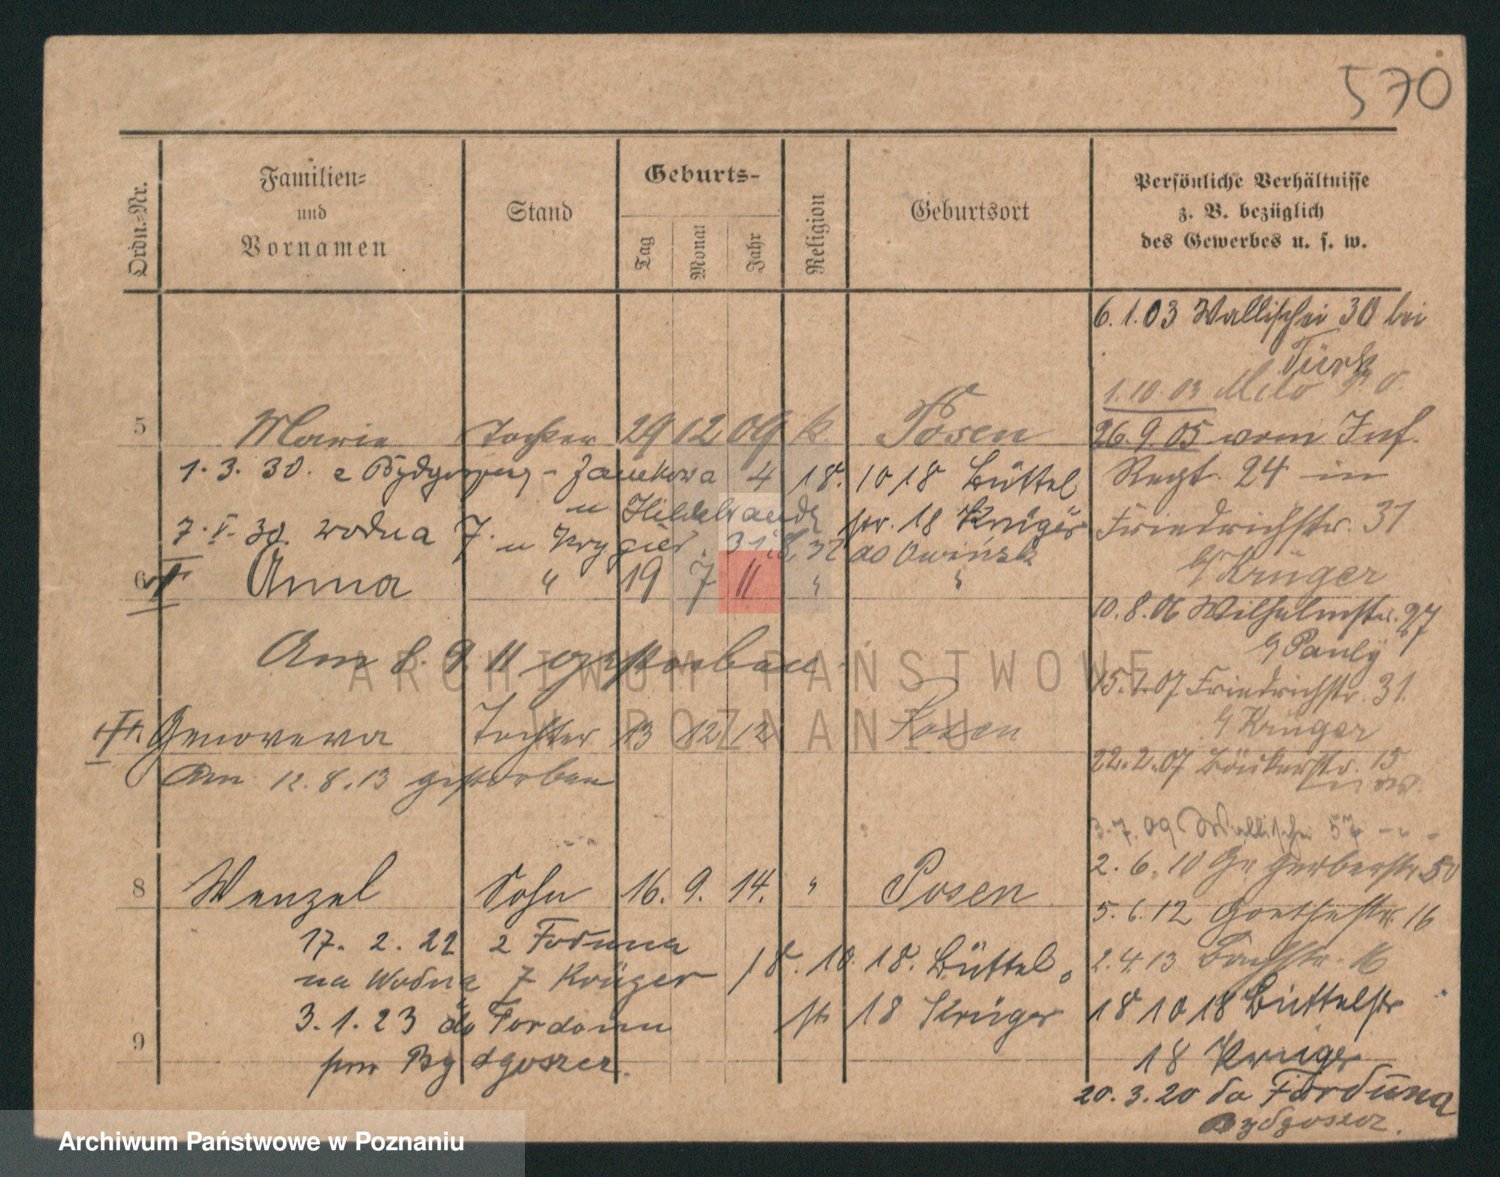 570
Ordn.-Nr.
Familien-
und
Vornamen
Stand
Geburts-
Tag
Monat
Jahr
Religion
Geburtsort
Persönliche Verhältnisse
z. B. bezüglich
des Gewerbes u. s. w.
6.1.03 Wallischei 30 bei
Türk
1.10.03
5 Marie Tochter 29 12 09 k. Posen
26.9.05 vom Inf.
1.3.30. z Bydgoszczy - Zamkowa 4
18.10 18 Büttel
str. 18 Krüger
Regt. 24 in
u Hildebrandt
7.V.30. Wodna 7. u Krygier. 31.8.32 do Owińsk
Friedrichstr. 31
b/ Krüger
6 Anna " 19 7 11 " "
10.8.06 Wilhelmstr. 27
b/ Pauly
Am 8.9.11 gestorben
15.1.07 Friedrichstr. 31.
b/ Krüger
Genoveva Tochter 13 12 12 Posen
22.2.07 Bäckerstr. 15
Am 12.8.13 gestorben
3.7.09 Wallischei
2.6.10 Gr. Gerberstr. 50
8 Wenzel Sohn 16. 9. 14. " Posen
5.6.12 Goethestr. 16
17. 2. 22 z Forduna
na Wodna 7 Krüger
18. 10. 18. Büttel
str. 18 Krüger
2.4.13 Bachstr. 16
3.1.23 do Fordonu
18 10 18 Büttelstr
9
pow Bydgoszcz.
18 Krüger
20.3.20 do Forduna
Bydgoszcz.
ARCHIWUM PAŃSTWOWE
W POZNANIU
Archiwum Państwowe w Poznaniu